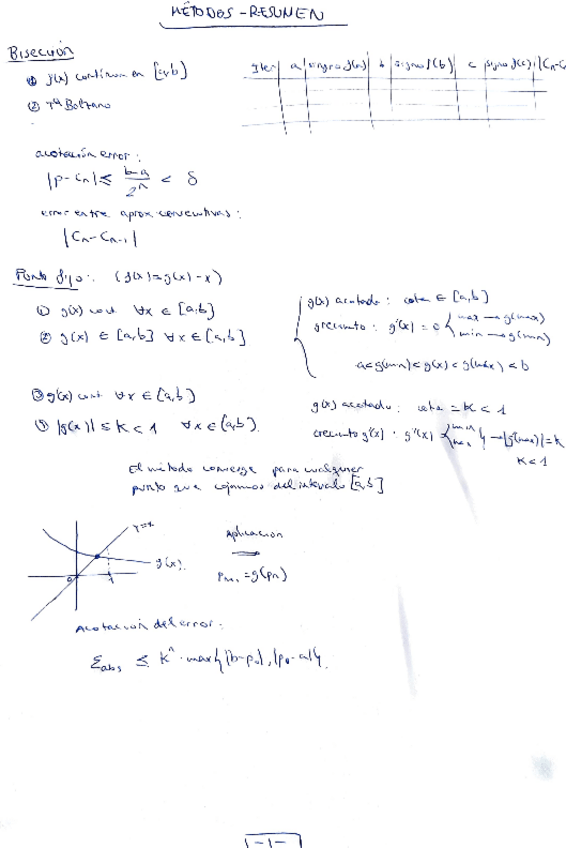 MÉTODOS - RESUMEN
Bisección
① f(x) continua en [a,b]
② Tª Bolzano
Iter a signo f(a) b signo f(b) c signo f(c) |Cn-C
acotación error:
|p - cn| ≤ b-a / 2^n < δ
error entre aprox consecutivas:
|Cn - Cn-1|
Punto fijo: (f(x)=g(x)-x)
① g(x) cont ∀x ∈ [a,b]
② g(x) ∈ [a,b] ∀x ∈ [a,b]
g(x) acotado: cota ∈ [a,b]
crecimiento: g'(x) = 0 { max → g(max)
min → g(min)
a<g(min)<g(x)<g(máx)<b
③ g'(x) cont ∀x ∈ (a,b)
|g'(x)| ≤ K < 1 ∀x ∈ (a,b).
g'(x) acotado: cota = K < 1
crecimiento g'(x) : g''(x) { min max } → |g'(max)| = K
K < 1
El método converge para cualquier
punto que cojamos del intervalo [a,b]
y=x
g(x).
Aplicación
Pn+1 = g(Pn)
Acotación del error:
Eabs ≤ K^n · max{|b-p0|, |p0-a|}
-1-